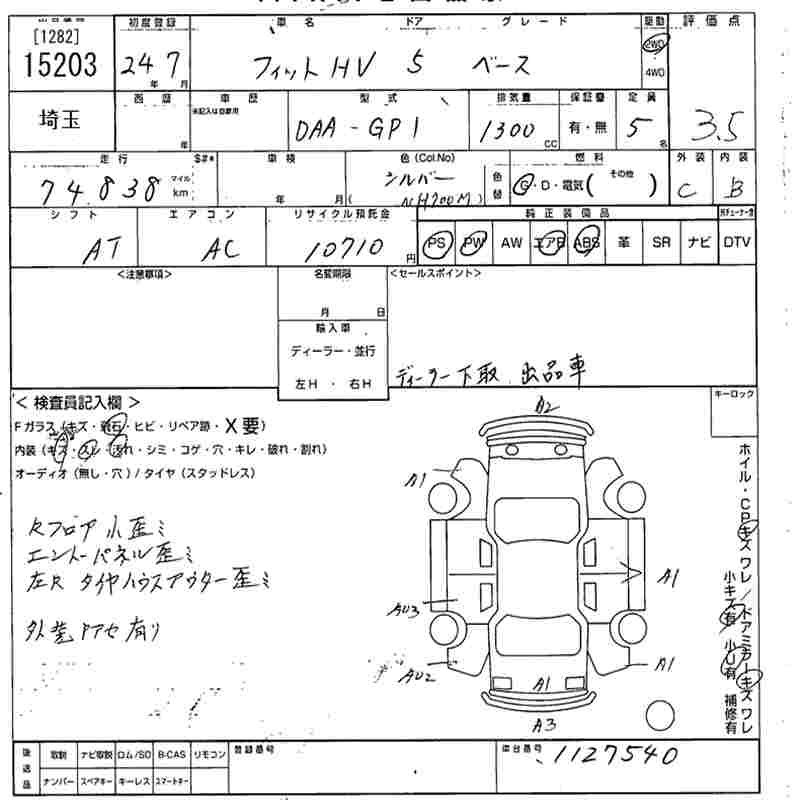 出品番号 初度登録 車名 ドア グレード 駆動 評価点
[1282]
15203 24 7 フィットHV 5 ベース 2WD
年 月 4WD
埼玉 西暦 車歴 型式 排気量 保証書 定員
※記入は自家用
DAA-GP1 1300 有・無 5 3.5
年 CC 名
走行 S#* 車検 色(Col.No) 燃料 外装 内装
74,838 マイル シルバー 色替 G・D・電気( その他 ) C B
km 年 月 (NH700M)
シフト エアコン リサイクル預託金 純正装備品
AT AC 10710 円 PS PW AW エアB ABS 革 SR ナビ DTV
<注意事項> 名変期限 <セールスポイント>
月 日
輸入車
ディーラー・並行
左H ・ 右H ディーラー下取 出品車
< 検査員記入欄 > キーロック
Fガラス (キズ・飛石・ヒビ・リペア跡・X要)
内装 (キズ・スレ・汚れ・シミ・コゲ・穴・キレ・破れ・割れ)
オーディオ (無し・穴) / タイヤ (スタッドレス)
Rフロア小歪ミ
エンドパネル歪ミ
左R タイヤハウスアウター歪ミ
外装 有り
A2
A1
A1
AU3
AU2
A1
A1
A3
ホイル・CPキズワレ/ドアミラーキズワレ
小キズ有 小U有 補修有
後送品 取説 ナビ取説 ロム/SD B-CAS リモコン 登録番号 車台番号 1127540
ナンバー スペアキー キーレス スマートキー